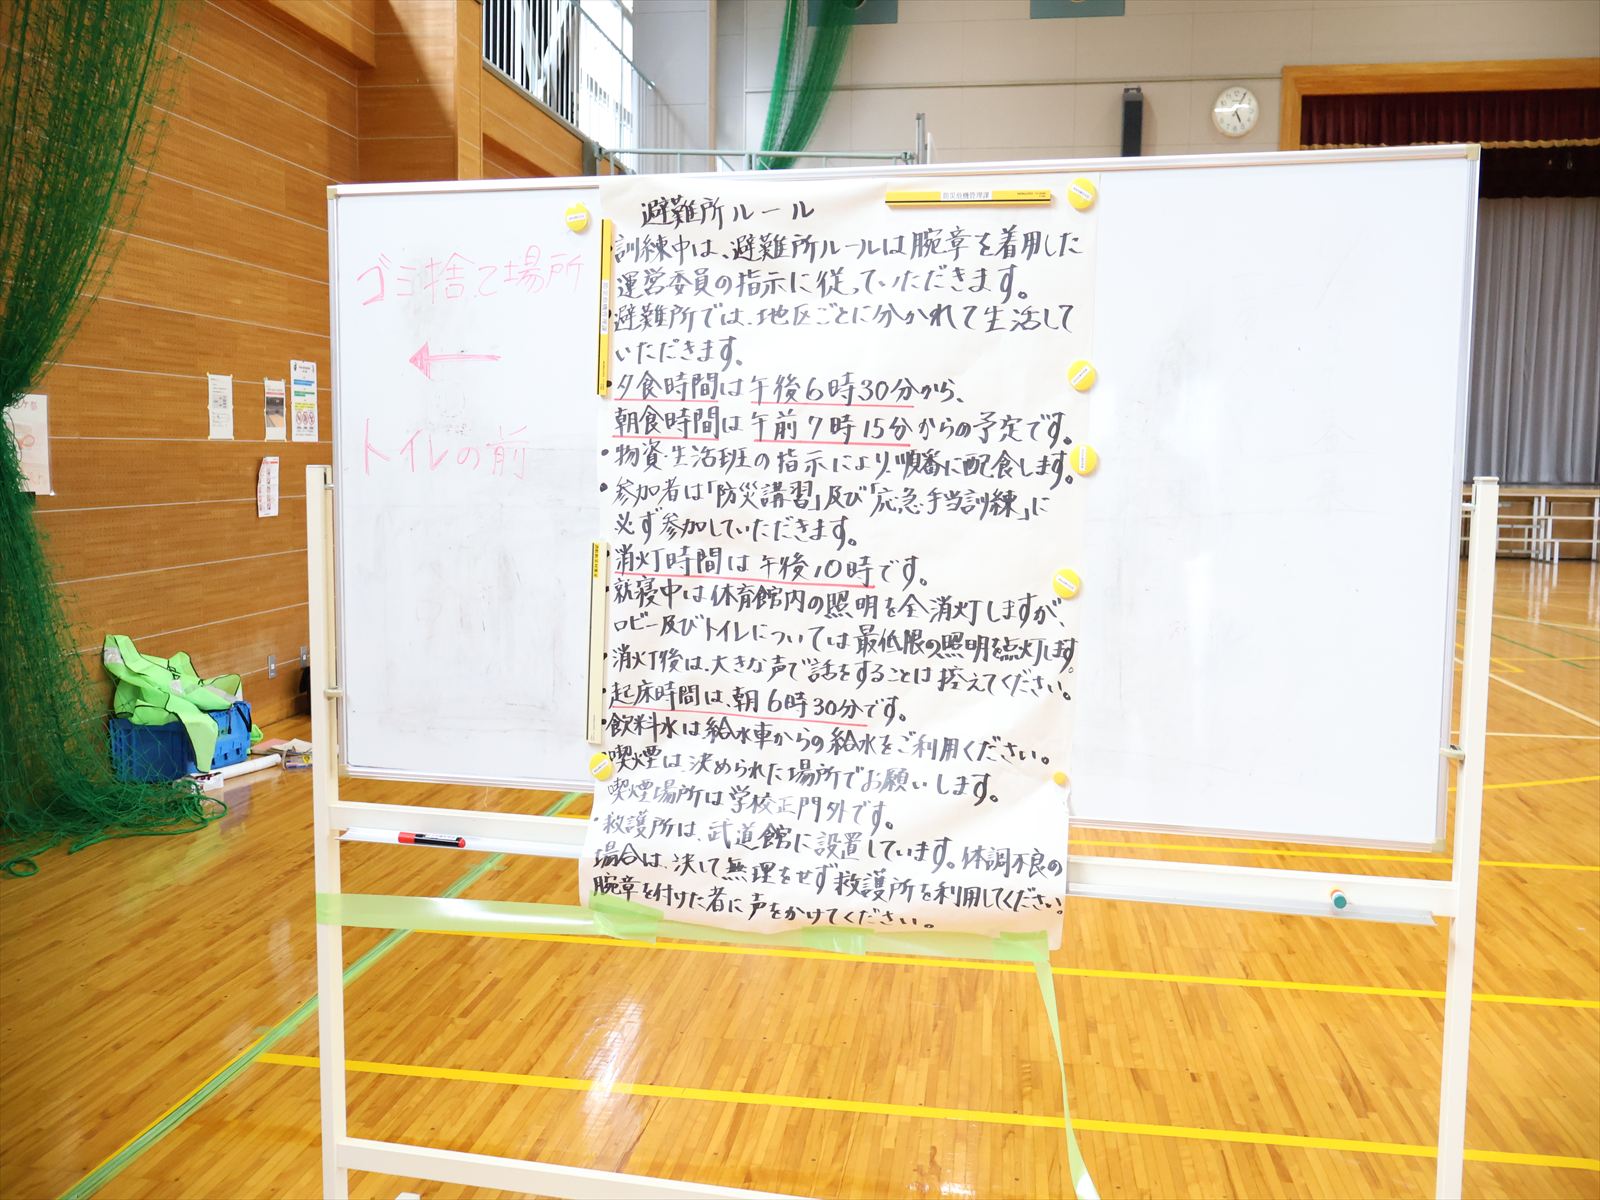 ゴミ捨て場所
トイレの前
防災危機管理課
避難所ルール
・訓練中は、避難所ルールは腕章を着用した
運営委員の指示に従っていただきます。
・避難所では、地区ごとに分かれて生活して
いただきます。
・夕食時間は午後6時30分から、
朝食時間は午前7時15分からの予定です。
・物資・生活班の指示により、順番に配食します。
・参加者は「防災講習」及び「応急手当訓練」に
必ず参加していただきます。
・消灯時間は午後10時です。
・就寝中は体育館内の照明を全消灯しますが、
ロビー及びトイレについては最低限の照明を点灯します。
・消灯後は、大きな声で話をすることは控えてください。
・起床時間は、朝6時30分です。
・飲料水は給水車からの給水をご利用ください。
・喫煙は、決められた場所でお願いします。
喫煙場所は学校正門外です。
・救護所は、武道館に設置しています。体調不良の
場合は、決して無理をせず救護所を利用してください。
腕章を付けた者に声をかけてください。